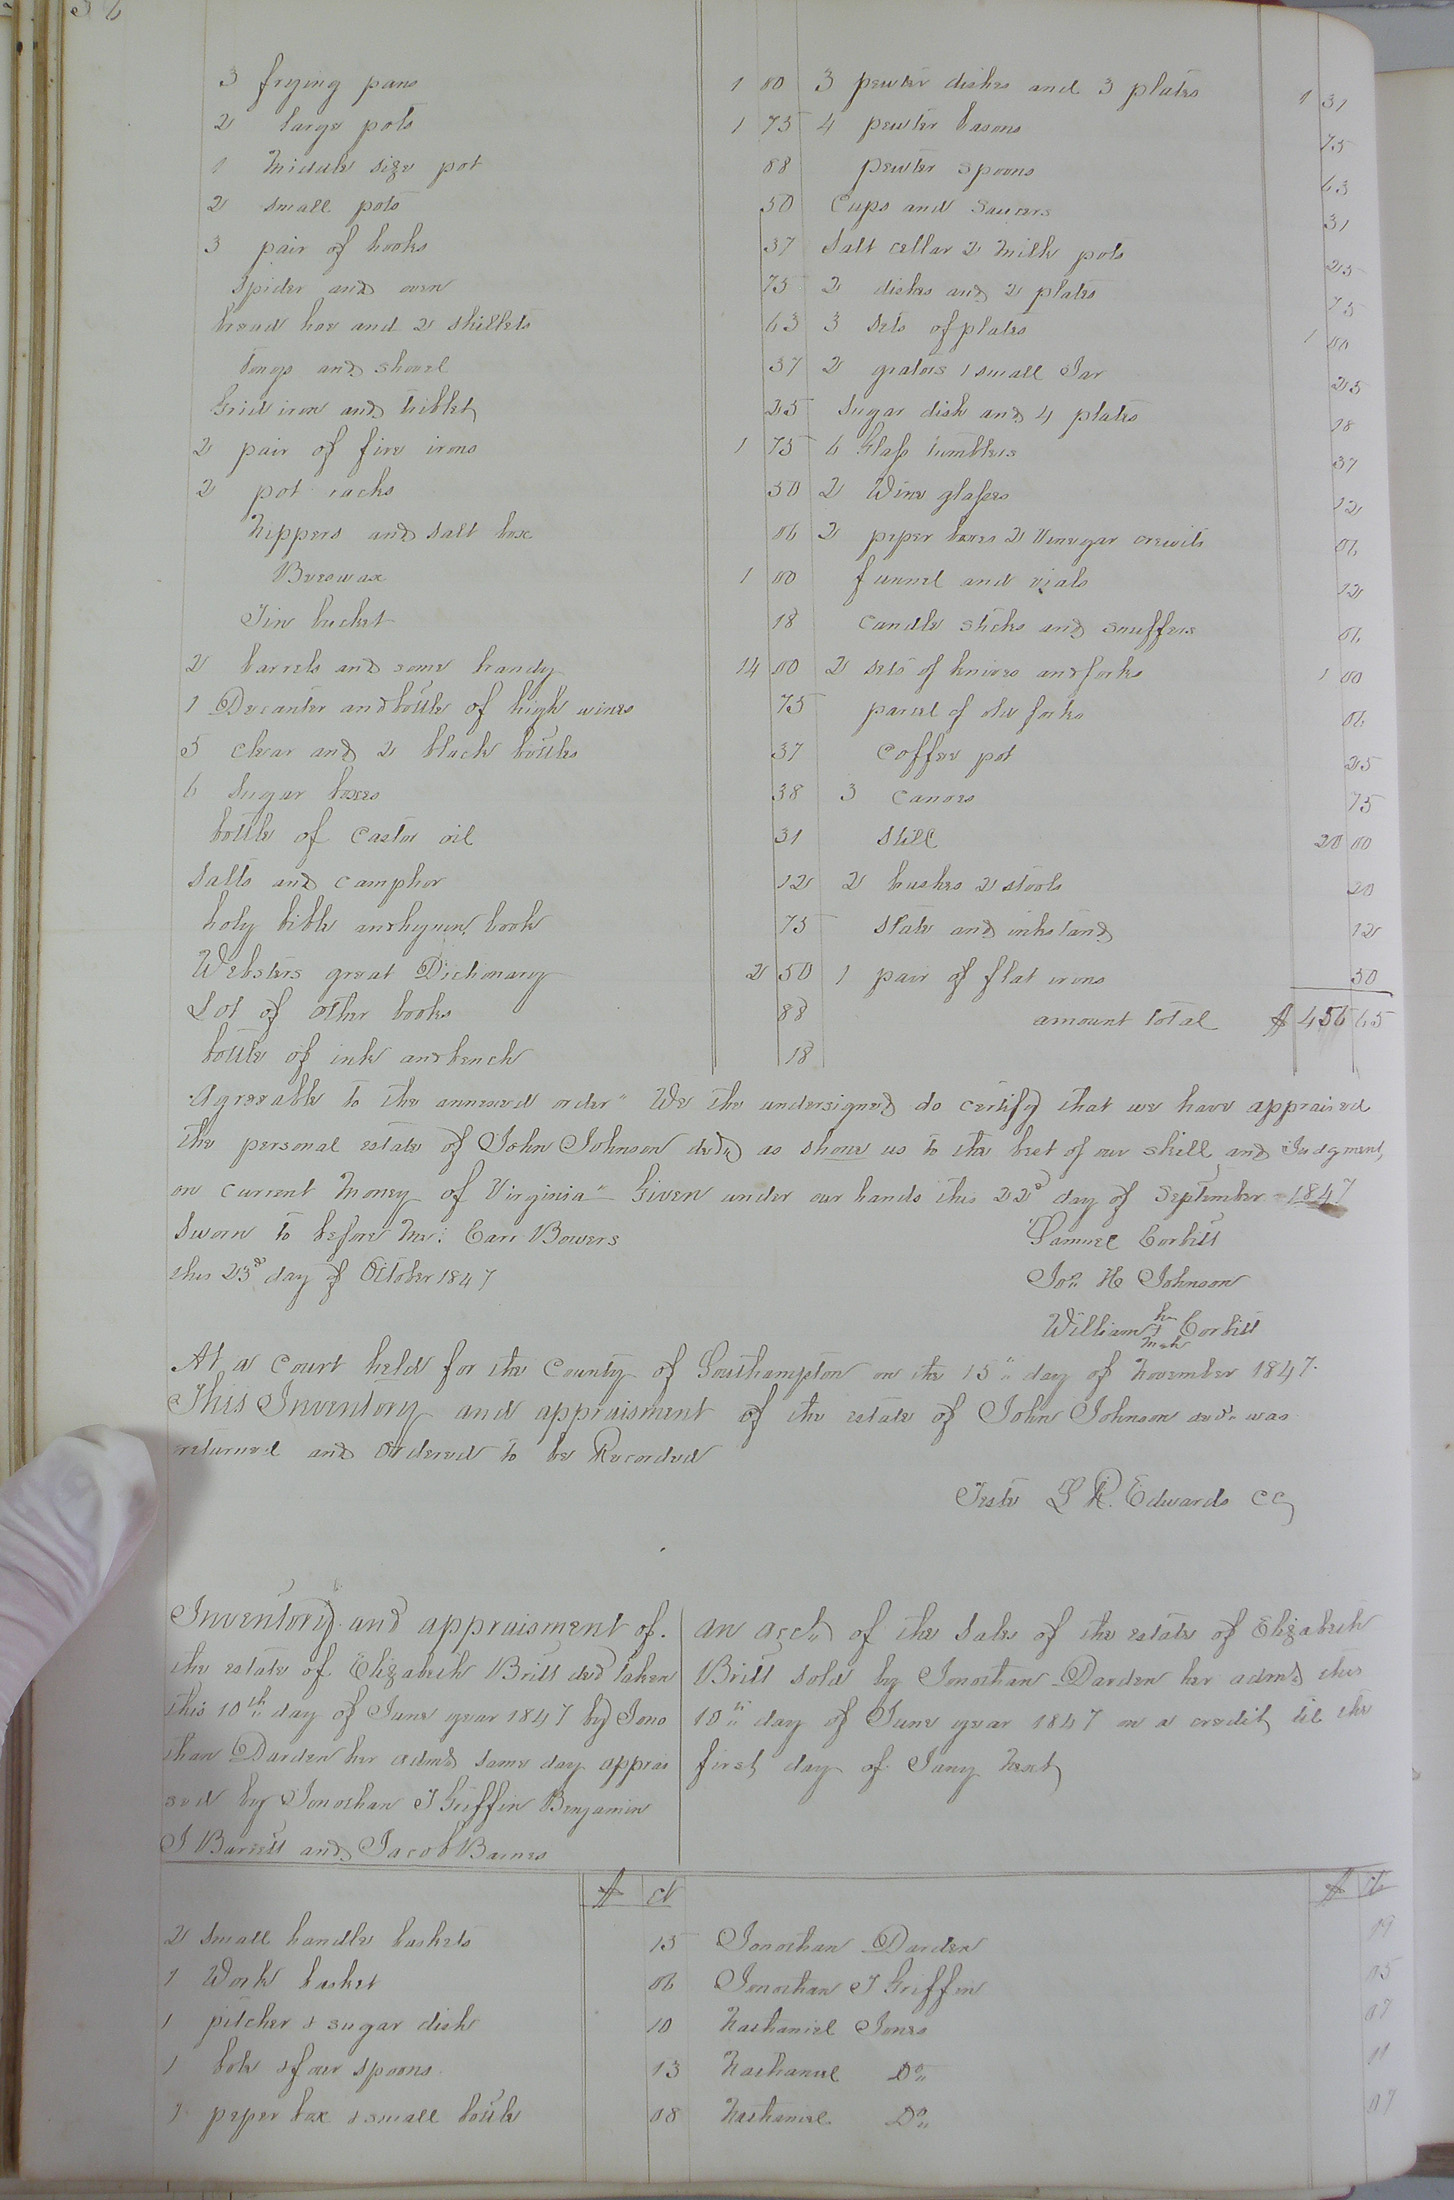 3 frying pans 1 00 3 pewter dishes and 3 plates 1 31
2 large pots 1 75 4 pewter basons 75
1 Midule size pot 88 pewter spoons 63
2 small pots 50 Cups and Saucers 31
3 pair of hooks 37 Salt cellar 2 milk pots 25
Spider and oven 75 2 dishes and 2 plates 75
bread hoe and 2 Skillets 63 3 Sets of plates 1 00
tongs and shovel 37 2 graters 1 small Jar 25
Grid iron and 25 Sugar dish and 4 plates 18
2 pair of fire irons 1 75 6 Glass tumblers 37
2 pot racks 50 2 Wine glasses 12
Nippers and Salt box 06 2 peper boxes 2 Vinegar crewits 06
Beeswax 1 00 funnel and vials 12
Tin bucket 18 Candle sticks and snuffers 06
2 barrels and some brandy 14 00 2 sets of knives and forks 1 00
1 Decanter and bottle of high wines 75 parcel of old forks 06
5 clear and 2 black bottles 37 Coffee pot 25
6 Sugar boxes 38 3 Canoes 75
bottle of Castor oil 31 Still 20 00
Salts and camphor 12 2 2 stools 20
holy bible and hymn book 75 Slate and inkstand 12
Websters great Dictionary 2 50 1 pair of flat irons 50
Lot of other books 88 amount total $ 456 65
bottle of ink and bench 18
Agreeable to the annexed order" We the undersigned do certify that we have appraised
the personal estate of John Johnson decd as shone us to the best of our skill and Judgment,
on current money of Virginia" Given under our hands this 22d day of September 1847
Sworn to before me: Carr Bowers Samuel Corbitt
this 23d day of October 1847 Jos. H Johnson
William his + mark Corbitt
At a Court held for the County of Southampton on the 15th day of November 1847.
This Inventory and appraisment of the estate of John Johnson decd. was
returned and Ordered to be Recorded
Teste L R. Edwards CC
Inventory and appraisment of.
the estate of Elizabeth Britt decd taken
this 10th day of June year 1847 by Jona
than Darden her admr same day apprai
sed by Jonathan T Griffin Benjamin
J Barrett and Jacob Barnes
an acct of the Sales of the estate of Elizabeth
Britt Sold by Jonathan Darden her admr this
10th day of June year 1847 on a credit til the
first day of Jany next
$ ct $ cts
2 small handle baskets 15 Jonathan Darden 09
1 Work basket 06 Jonathan T Griffin 05
1 pitcher & sugar dish 10 Nathaniel Jones 07
1 bole & four spoons 13 Nathaniel Do 11
1 peper box & small bottle 08 Nathaniel Do 07